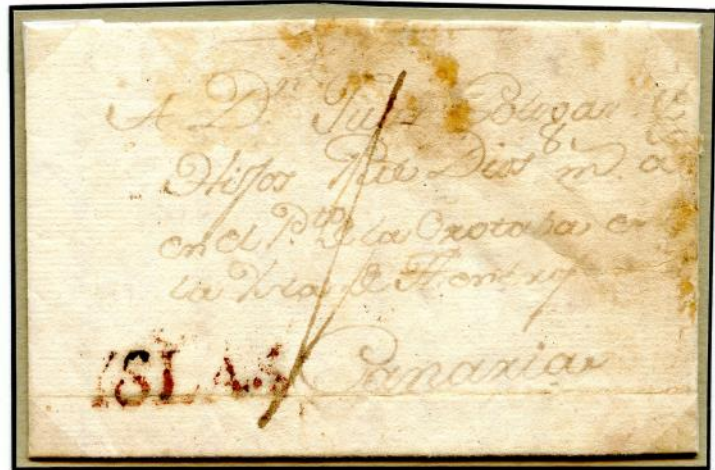 A Dn. Juan Cologan é
Hijos gue Dios ms. as.
en el Pto. de la Orotaba en
la Ysla de Thenerife
ISLAS Canarias